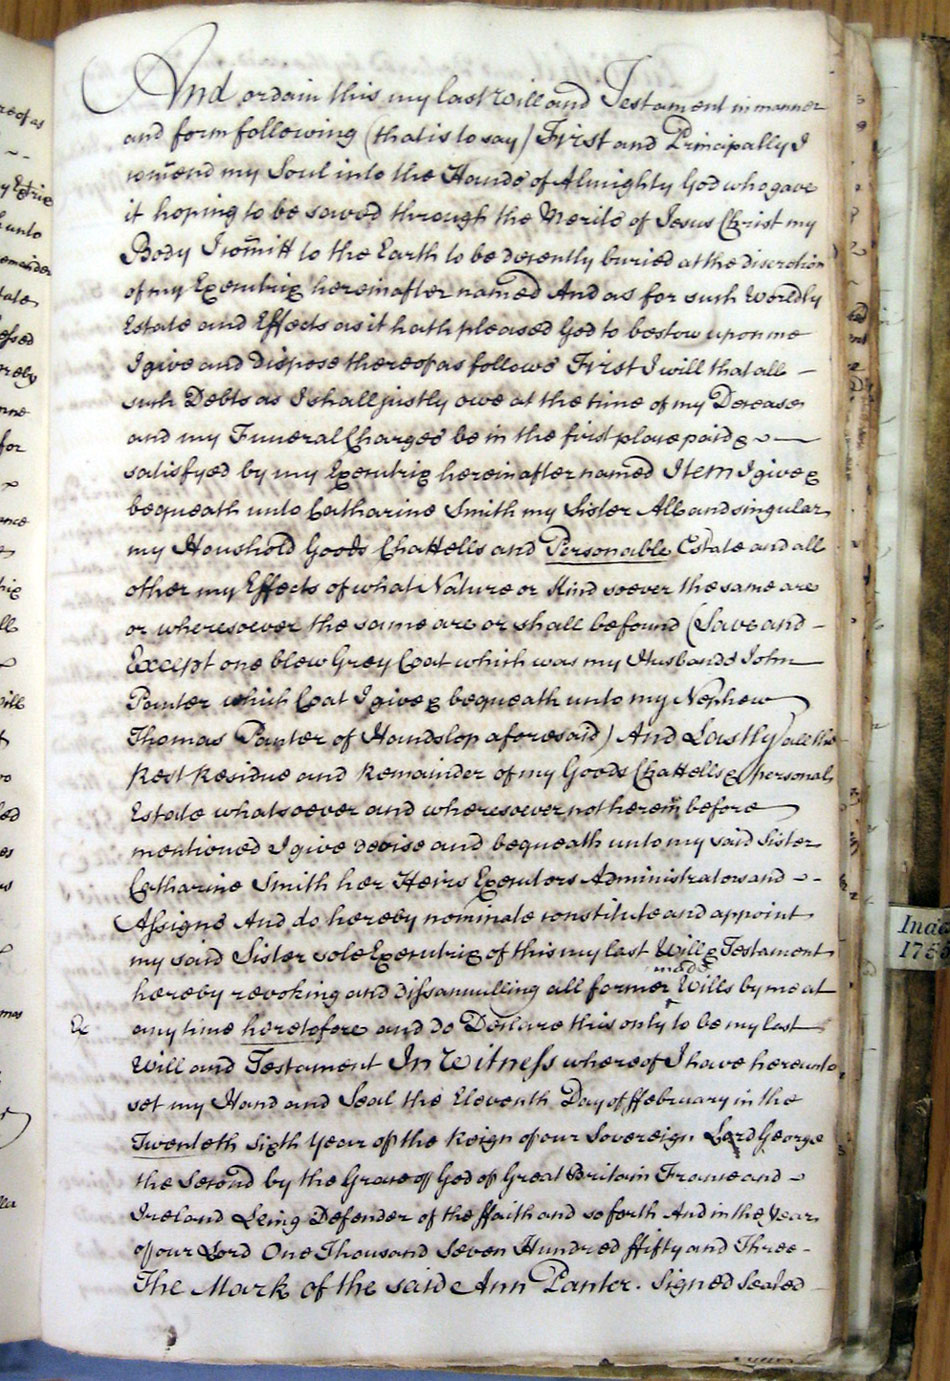 And ordain this my last Will and Testament in manner
and form following (that is to say) First and Principally I
com̄end my Soul into the Hands of Almighty God who gave
it hoping to be saved through the Merits of Jesus Christ my
Body I com̄itt to the Earth to be decently buried at the discretion
of my Executrix hereinafter named And as for such Worldly
Estate and Effects as it hath pleased God to bestow upon me
I give and dispose thereof as follows First I will that all -
such Debts as I shall justly owe at the time of my Decease
and my Funeral Charges be in the first place paid &
satisfyed by my Executrix hereinafter named Item I give &
bequeath unto Catharine Smith my Sister All and singular
my Houshold Goods Chattells and Personable Estate and all
other my Effects of what Nature or Kind soever the same are
or wheresoever the same are or shall be found (Save and -
Except one blew Grey Coat which was my Husbands John
Panter which Coat I give & bequeath unto my Nephew
Thomas Panter of Handslop aforesaid) And Lastly all the
Rest Residue and Remainder of my Goods Chattells & personal
Estate whatsoever and wheresoever not herein before
mentioned I give devise and bequeath unto my said Sister
Catharine Smith her Heirs Executors Administrators and - -
Assigns And do hereby nominate constitute and appoint
my said Sister sole Executrix of this my last Will & Testament
hereby revoking and dissannulling all former made Wills by me at
Ex any time heretofore and do Declare this only to be my last
Will and Testament In Witness whereof I have hereunto
set my Hand and Seal the Eleventh Day of ffebruary in the
Twenteth Sixth Year of the Reign of our Sovereign Lord George
the Second by the Grace of God of Great Britain France and -
Ireland King Defender of the ffaith and so forth And in the Year
of our Lord One Thousand Seven Hundred ffifty and Three -
The Mark of the said Ann Panter. Signed Sealed